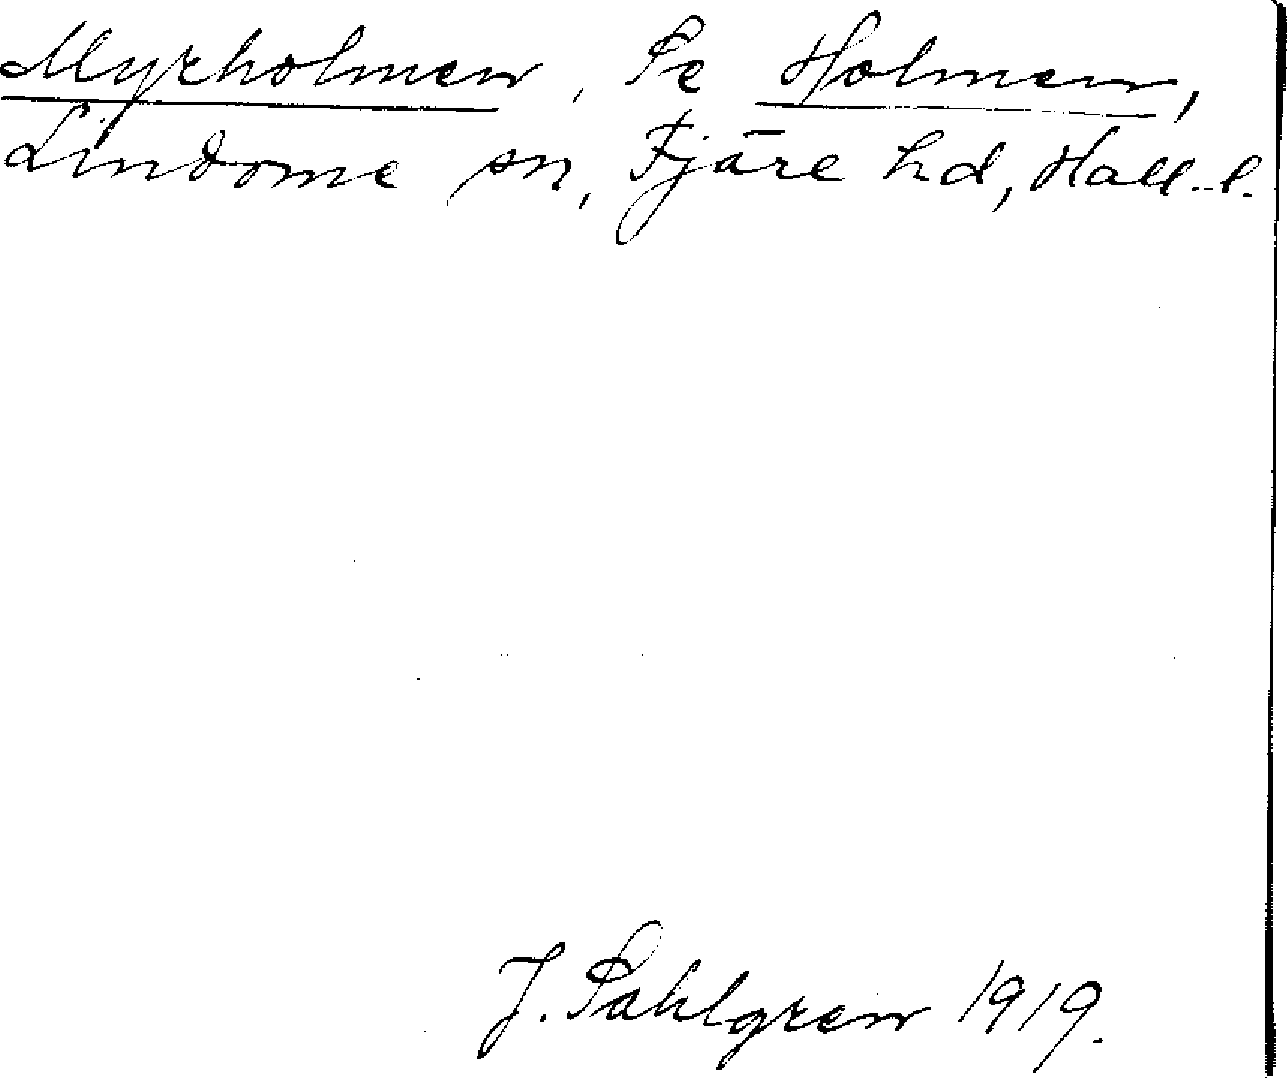 Myrholmen, Se Holmen,
Lindome sn, Fjäre hd, Hall. l.
J. Sahlgren 1919.